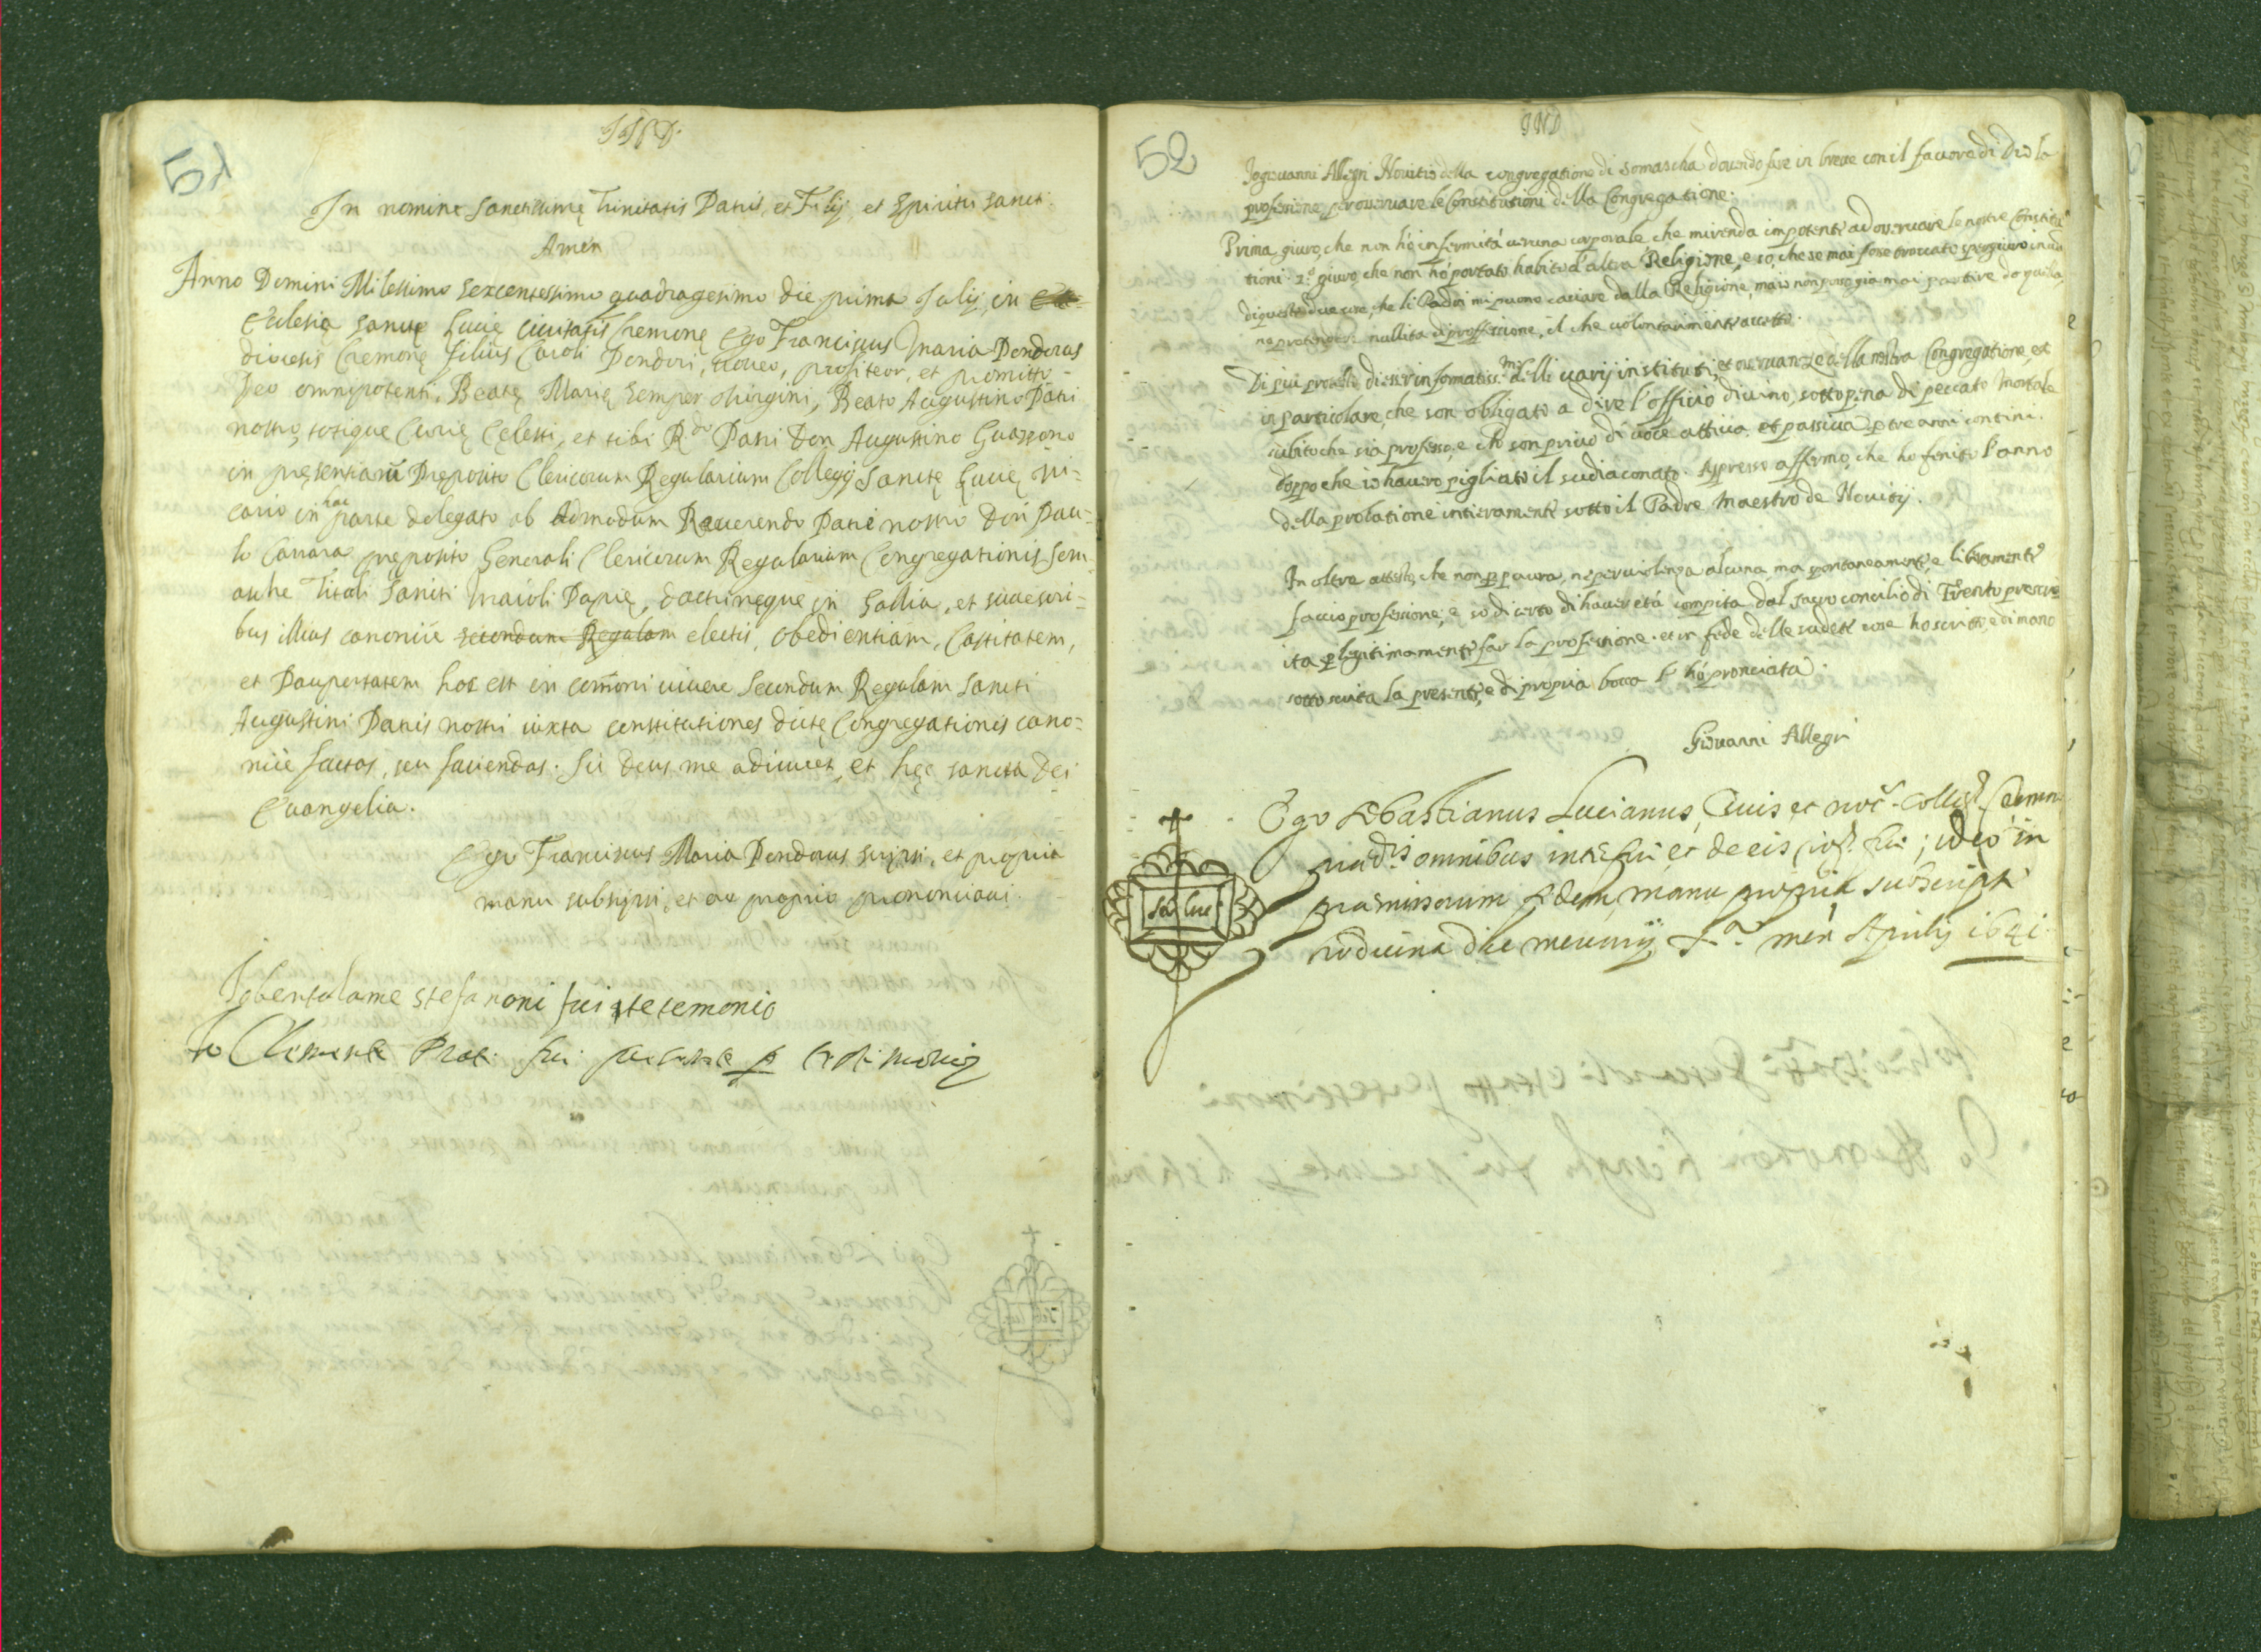 51
In nomine Sanctissimę Trinitatis Patris, et Filij, et Spiritus Sancti.
Amen
Anno Domini Milessimo sexcentessimo quadragesimo die prima Julij, in
Eclesia Sanctę Lucię Civitatis Cremonę Ego Franciscus Maria Pondorus
diocesis Cremonę filius Caroli Pondori, voveo, profiteor, et promitto
Deo omnipotenti, Beatę Marię semper Virgini, Beato Augustino Patri
nostro, totique Curię Celesti, et tibi Rdo Patri Don Augustino Guazzono
in pręsentiarū Preposito Clericorum Regularium Collegij Sanctę Lucię Vi-
cario in hac parte delegato ab Admodum Reverendo Patre nostro Don Pau-
lo Carrara preposito Generali Clericorum Regularium Congregationis Som-
aschę Tituli Sancti Maioli Papię, doctrinęque in Gallia, et successori-
bus illius canonicè secundum Regulam electis, obedientiam, Castitatem,
et Paupertatem hoc est in com̄uni vivere Secundum Regulam Sancti
Augustini Patris nostri iuxta constitutiones dictę Congregationis cano-
nicè factas, seu faciendas. Sic Deus me adiuvet, et hęc sancta Dei
Evangelia.
Ego Franciscus Maria Pondorus scripsi, et propria
manu subscripsi, et ore proprio prononciavi.
Io bertolame stefanoni fui testemonio
Io Clemente Prati fui presente p testimonio
52
IND
Io giovanni Allegri Novitio della congregatione di somascha dovendo fare in breve con il favore di Dio la
professione per osservare le Constitutioni della Congregatione.
Prima giuro, che non hò infermità veruna corporale che mi renda impotente ad osservare le nostre Constitu
tioni. 2.º giuro che non hò portato habito d'altra Religione, e so, che se mai fosse trovcato spergiuro in una
di queste due cose, che li Padri mi puono caciare dalla Religione, ma io non posso già mai partire da quella,
ne pretendere nullità di professione, il che volontariamente accetto.
Di più protesto di esser informatiss.mo delli varij instituti, et osservanze della nostra Congregatione, et
in particolare, che son obligato a dire l'officio divino, sotto pena di peccato mortale
subito che sia professo, e che son privo di voce attiva, et passiva p tre anni continui.
doppo che io haverò pigliato il sudiaconato. Appresso affermo, che ho fenito l'anno
della probatione intieramente sotto il Padre Maestro de Novitij.
In oltre attesto, che non p paura, ne per violenza alcuna, ma spontaneamente, e liberamente
faccio professione, e so di certo di haver età compita dal sacro concilio di Trento prescri
ita p legitimamente far la professione. et in fede delle sudette cose ho scritto, e di mano
sotto scrita la presente, e di propria bocca l'hò pronciata.
Giovanni Allegri
Ego Sebastianus Lucianus, Civis et not. Colleg. Cremon.
prædis omnibus interfui et de eis rog. fui; ideo in
præmissorum fidem manu propria subscripsi
die mercurij mens Aprilis 1641.